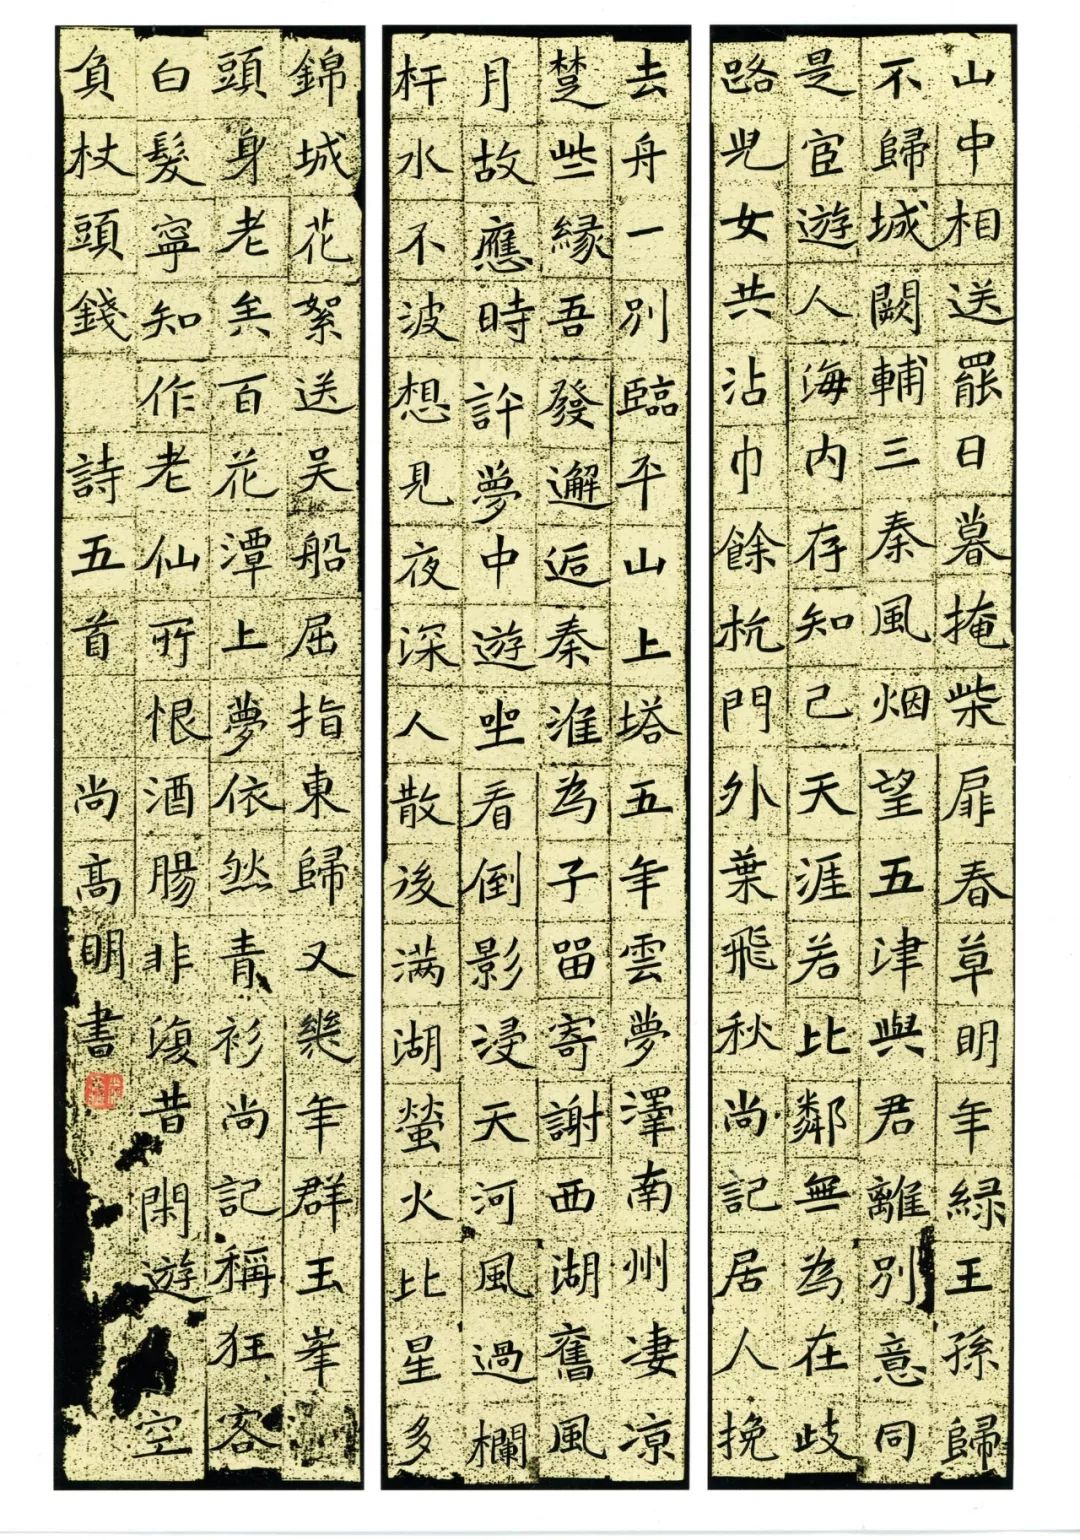 山中相送罷日暮掩柴扉春草明年緑王孫歸
不歸城闕輔三秦風烟望五津與君離別意同
是宦遊人海内存知己天涯若比鄰無為在歧
路児女共沾巾餘杭門外葉飛秋尚記居人挽
去舟一別臨平山上塔五年雲夢澤南州凄凉
楚些緣吾發邂逅秦淮為子留寄謝西湖舊風
月故應時許夢中遊坐看倒影浸天河風過欄
杆水不波想見夜深人散後满湖螢火比星多
錦城花絮送吴船屈指東歸又幾年群玉峯
頭身老矣百花潭上夢依然青衫尚記稱狂客
白髮寧知作老仙所恨酒腸非復昔閑遊空
負杖頭錢 詩五首 尚高明書